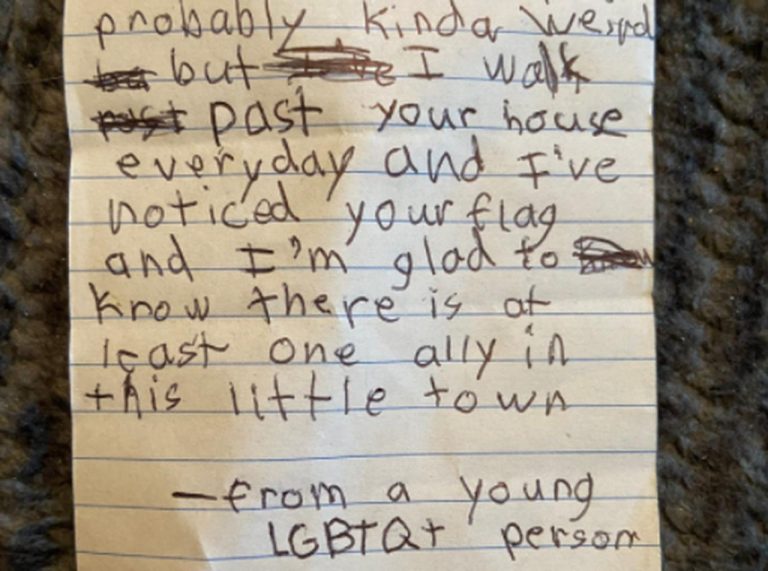 probably kinda weird
but I walk
past your house
everyday and I've
noticed your flag
and I'm glad to
know there is at
least one ally in
this little town
—from a young
LGBTQ+ person